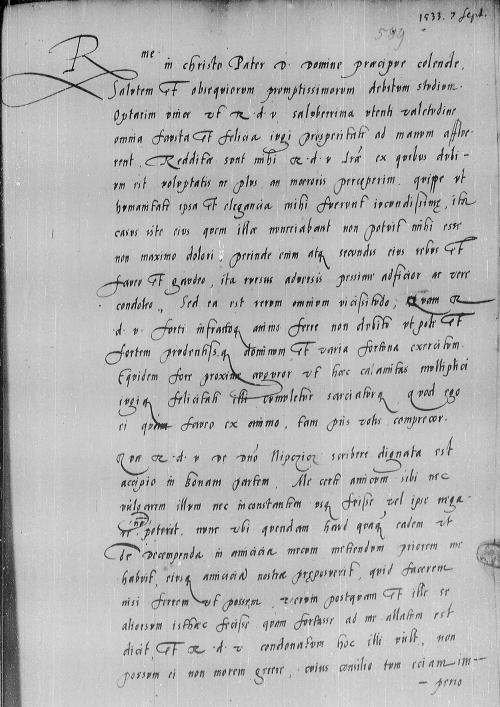 1533. 7 Sept.
589
R me in christo Pater & Domine præcipue colende,
Salutem Et obsequiorum promptissimorum debitum studium.
Optarim Et R. d. v. saluberrima utenti valetudine
omnia fausta Et felicia iugi prosperitate ad manum afflue-
rent. Redditæ sunt mihi R. d. v. lræ ex quibus dubi-
um est voluptatis ne plus an moeroris perceperim. quippe ut
humanitate ipsa Et elegancia mihi fuerunt iocundissimę, ita
casus iste eius quem illæ nunciabant non potuit mihi esse
non maximo dolori, perinde enim atq secundis eius rebus Et
faveo Et gaudeo, ita rursus adversis pessime adficior ac vere
condoleo, Sed ea est rerum omnium vicissitudo, Quam R
d. v. forti infractoq animo ferre non dubito ut pote Et
fortem prudentiss. q dominum Et varia fortuna exercitum.
Equidem fore proxime auguror ut hæc calamitas multiplici
iugiq felicitate illi sarciatur, quod ego
ei quam faveo ex animo, tam piis votis comprecor.
Quæ R. d. v. de dno Nipczicz scribere dignata est
accipio in bonam partem, Me certe amicum sibi nec
vulgarem illum nec inconstantem usq fuisse vel ipse nega-
re non poterit. nunc ubi quendam haud quaq eadem ut
de decempeda in amicicia mecum metiendum priorem me
habuit, eiusq amiciciã nostræ pręposuerit, quid facerem
nisi ferrem ut possem, verum postquam Et ille se
aliorsum isthæc fecisse quam fortasse ad me allatum est
dicit, Et R. d. v. condonatum hoc illi vult, non
possum ei non morem gerere, cuius consilio tum eciam im-
-perio